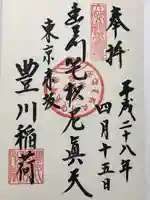 奉拝
平成二十八年
四月十五日
豊川吒枳尼真天
東京赤坂
豊川稲荷